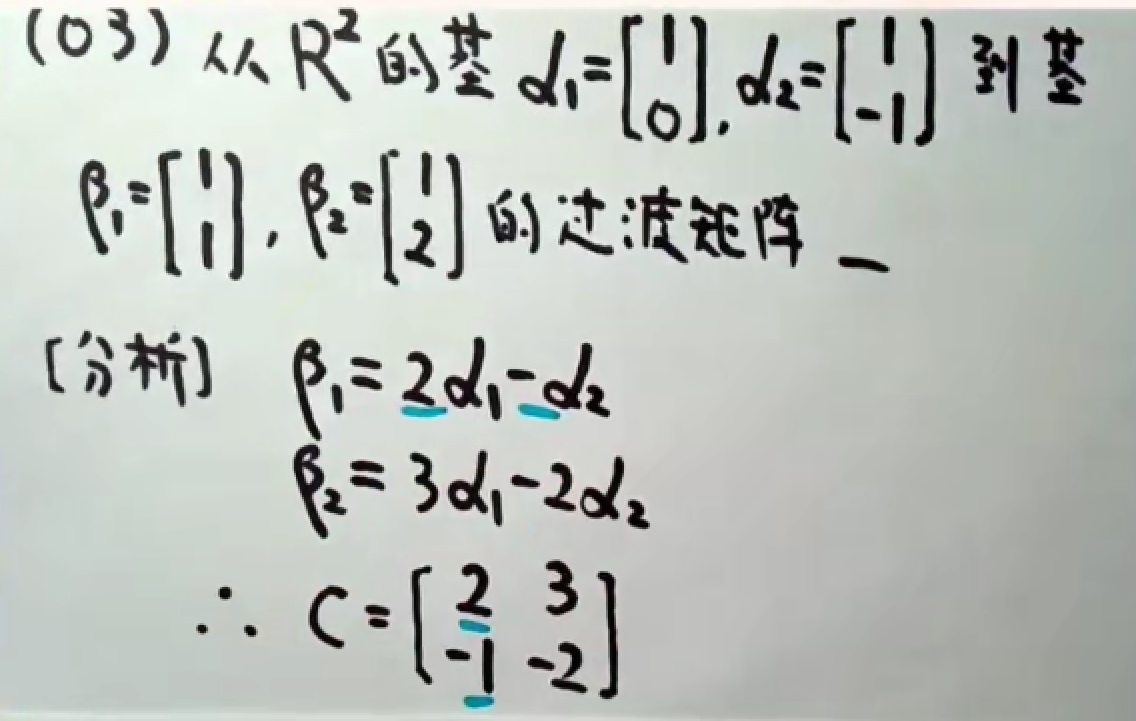 (03) 从 R² 的基 α₁=[1 0], α₂=[1 -1] 到基
β₁=[1 1], β₂=[1 2] 的过渡矩阵 _
[分析] β₁=2α₁-α₂
β₂=3α₁-2α₂
∴ C=[2 3
-1 -2]